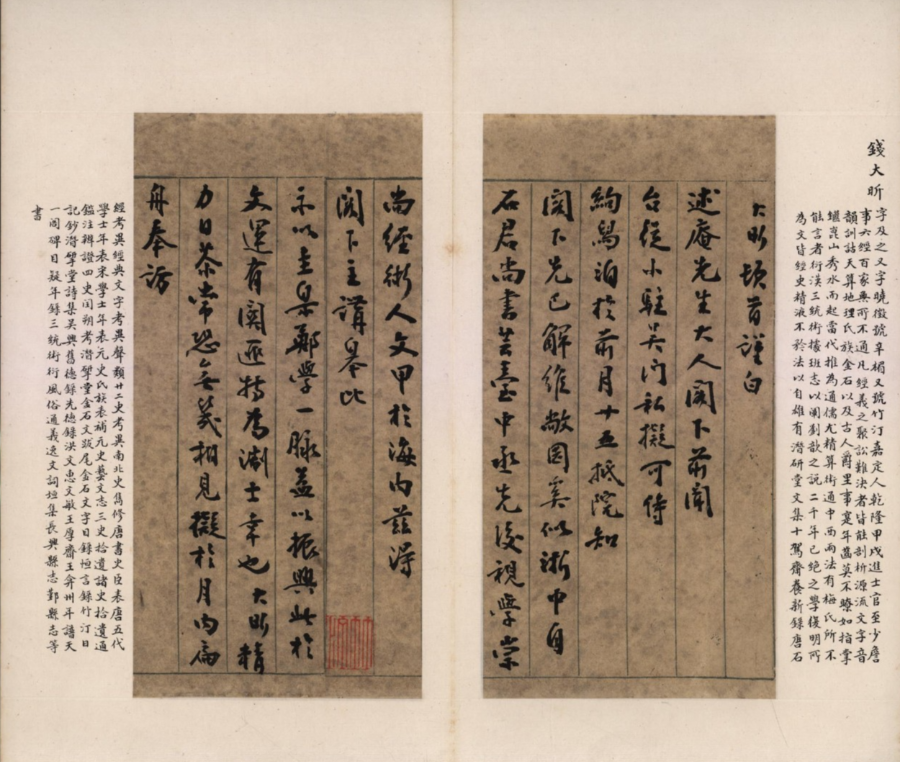 錢大昕
字及之又字曉徵號辛楣又號竹汀嘉定人乾隆甲戌進士官至少詹
事六經百家無所不通凡經義之聚訟難決者皆能剖析源流文字音
韻訓詁天算地理氏族金石以及古人爵里事寔年齒莫不瞭如指掌
崑山秀水而起當代推為通儒尤精算術通中西兩法有梅氏所不
能言者衍漢三統術據班志以闡劉歆之說二千年已絕之學復明所
為文皆經史精液不矜法以自雄有潛研堂文集十駕齋養新錄唐石
大昕頓首謹白
述庵先生大人閣下前聞
台從小駐吳門私擬可待
絢舄泊於前月十五抵院知
閣下先已解維敝園矣似浙中自
石君尚書芸臺中丞先後視學崇
尚經術人文甲於海內茲得
閣下主講皋比
示以圭臬鄭學一脉益以振興此於
文運有關匪特為浙士幸也大昕精
力日茶常恐無幾相見擬於月內扁
舟奉訪
經考異經典文字考異聲類廿二史考異南北史雋修唐書史臣表唐五代
學士年表宋學士年表元史氏族表補元史藝文志三史拾遺諸史拾遺通
鑑注辨證四史閏朔考潛揅堂金石文跋尾金石文字目錄恒言錄竹汀日
記鈔潛揅堂詩集吳興舊德錄先德錄洪文惠文敏王厚齋王弇州年譜天
一閣碑目疑年錄三統術衍風俗通義逸文詞垣集長興縣志鄞縣志等
書